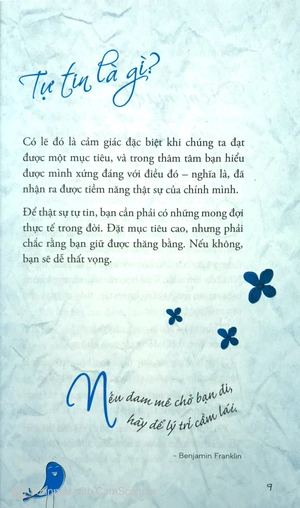 Tự tin là gì?
Có lẽ đó là cảm giác đặc biệt khi chúng ta đạt
được một mục tiêu, và trong thâm tâm bạn hiểu
được mình xứng đáng với điều đó – nghĩa là, đã
nhận ra được tiềm năng thật sự của chính mình.
Để thật sự tự tin, bạn cần phải có những mong đợi
thực tế trong đời. Đặt mục tiêu cao, nhưng phải
chắc rằng bạn giữ được thăng bằng. Nếu không,
bạn sẽ dễ thất vọng.
Nếu đam mê chở bạn đi,
hãy để lý trí cầm lái.
- Benjamin Franklin
9